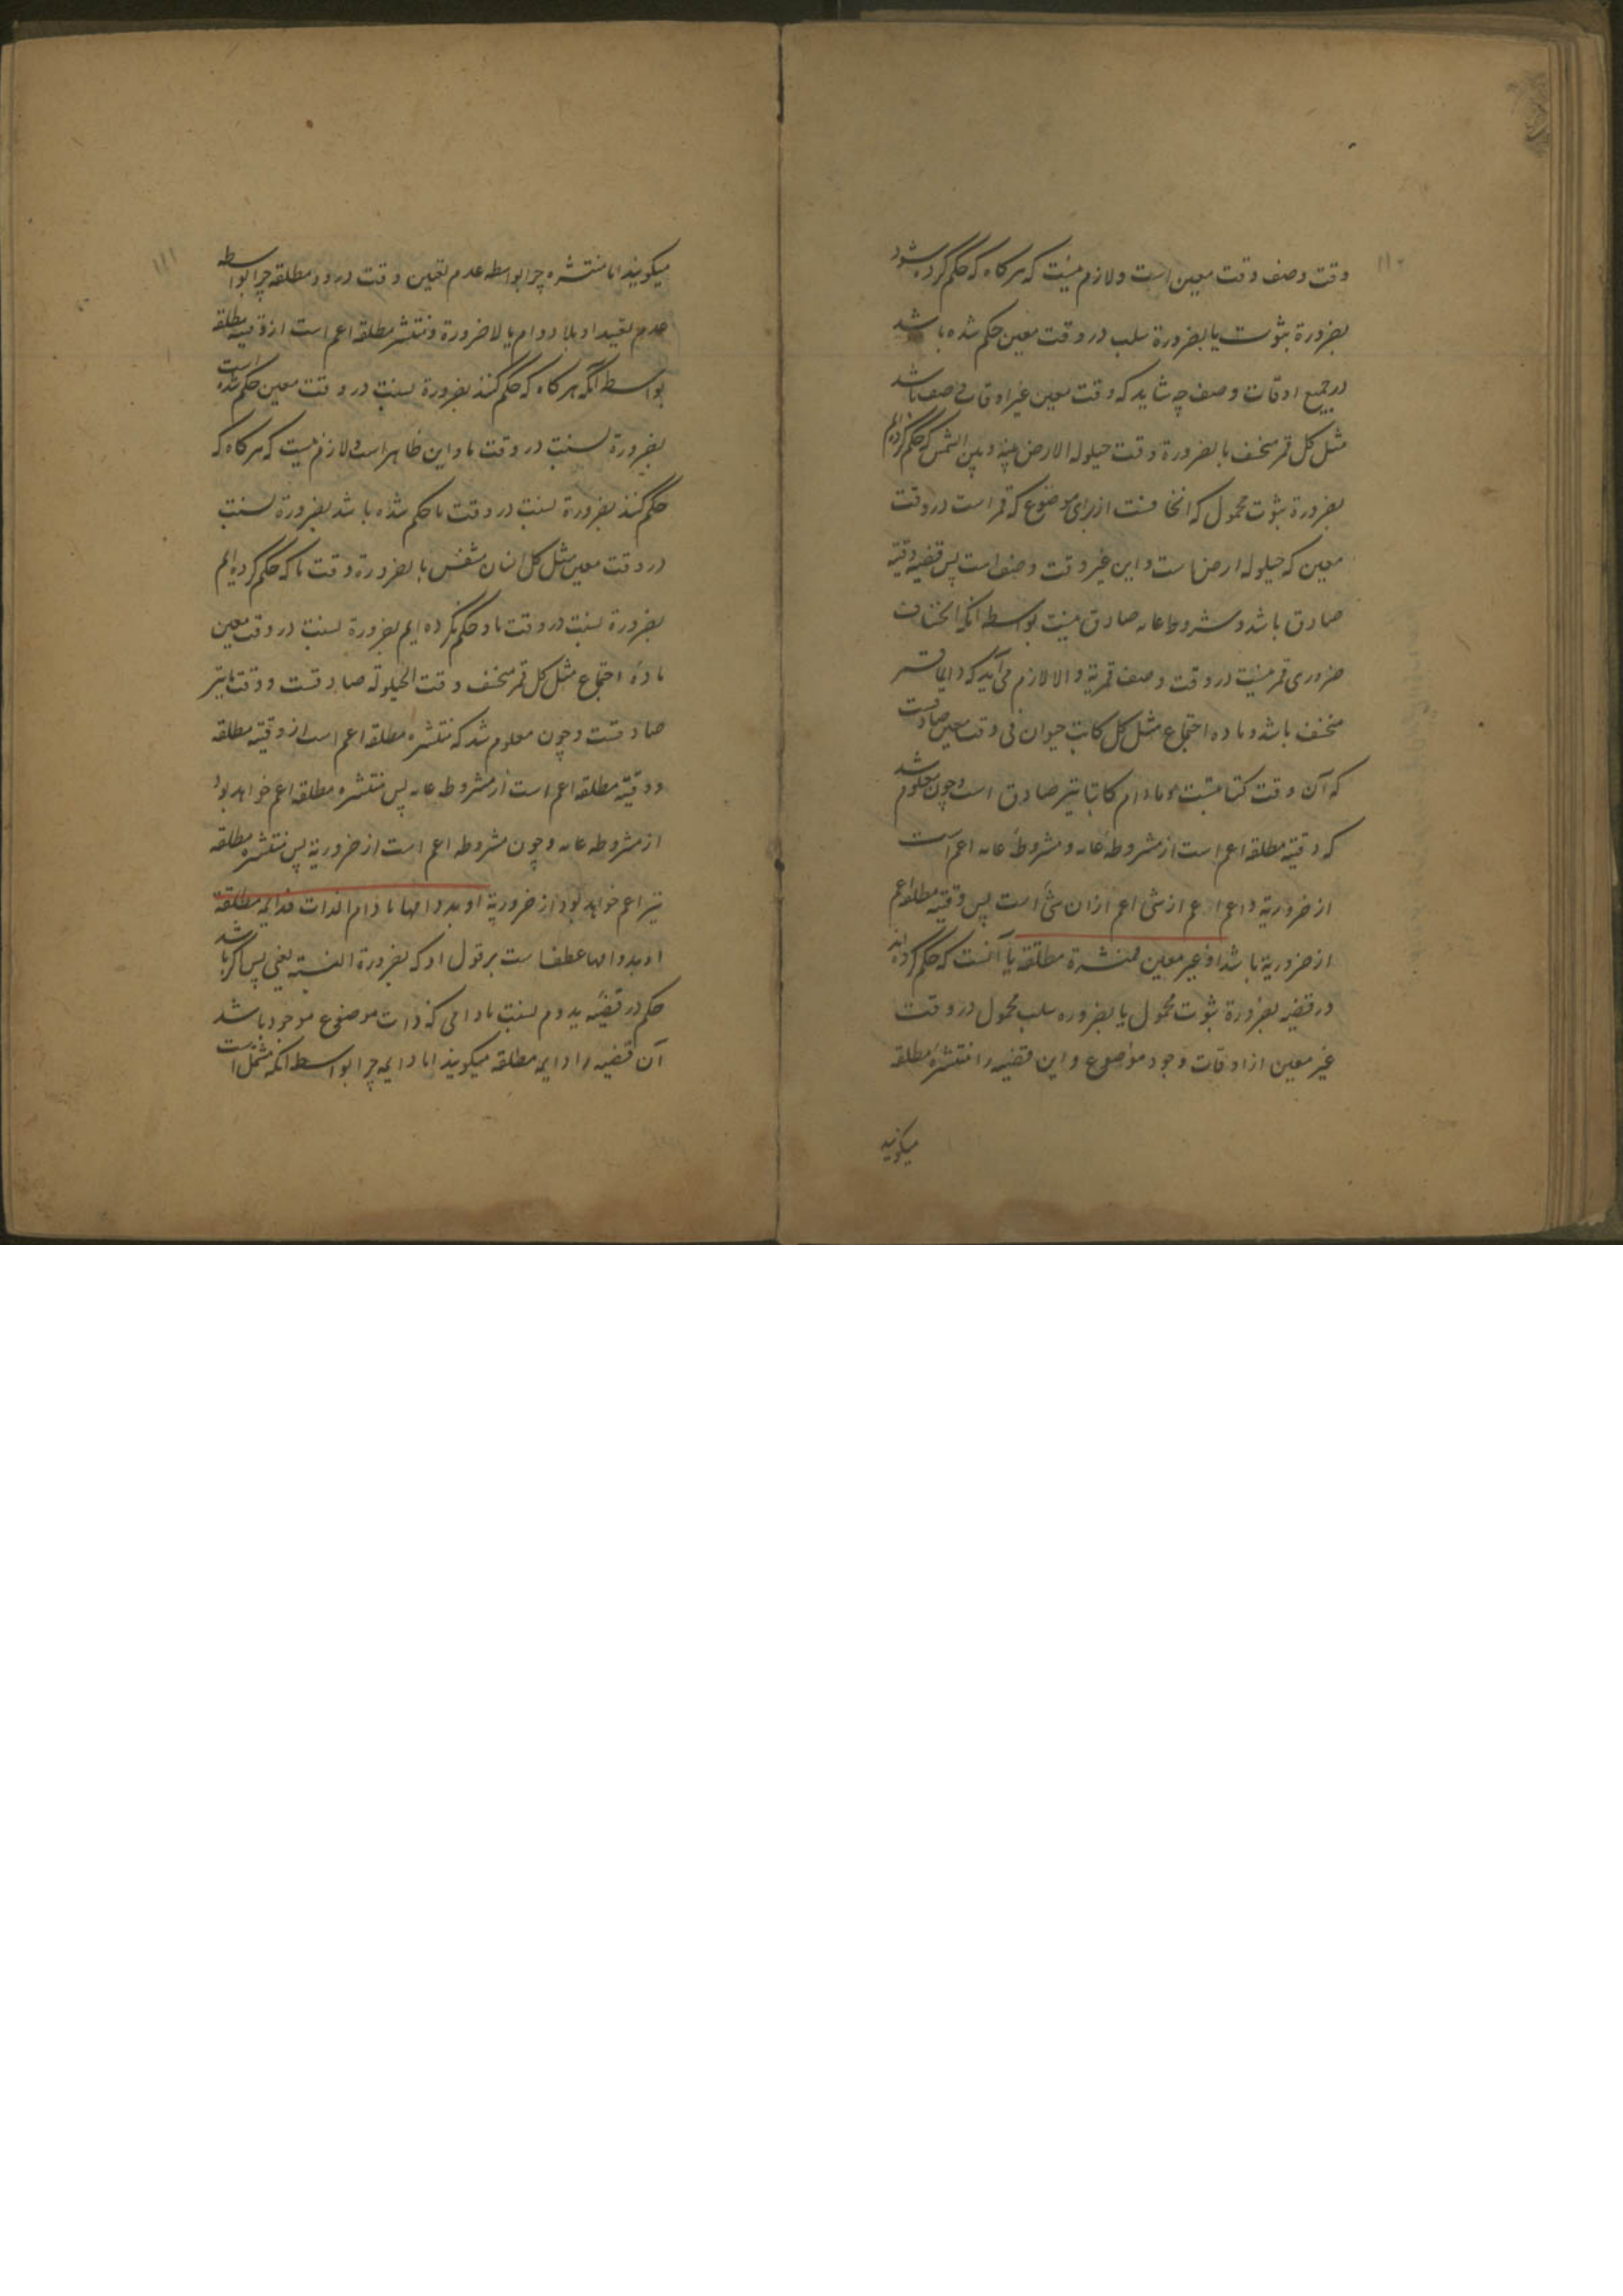 ۱۱۰
وقت وصف وقت معین است و لازم نیست که هر کاه که حکم کرده شود
بضرورة ثبوت یا بضرورة سلب در وقت معین حکم شده باشد
در جمیع اوقات وصف چه شاید که وقت معین غیر اوقات وصف باشد
مثل کل قمر منخسف بالضرورة وقت حیلولة الارض بینه و بین الشمس که حکم کرده ایم
بضرورة ثبوت محمول که انخسافست از برای موضوع که قمر است در وقت
معین که حیلوله ارض است و این غیر وقت وصف است پس قضیه وقتیه
صادق باشد و مشروطه عامه صادق نیست بواسطه انکه انخساف
ضروری قمر نیست در وقت وصف قمریة و الا لازم می آید که دایما قمر
منخسف باشد و ماده اجتماع مثل کل کاتب حیوان فی وقت معین صادقست
که آن وقت کتابتست و مادام کاتبا نیز صادق است و چون معلوم شد
که وقتیه مطلقه اعم است از مشروطه عامه و مشروطه عامه اعم است
از ضروریة و اعم از اعم از شئ اعم از ان شئ است پس وقتیه مطلقه اعم
از ضروریة باشد او غیر معین فمنتشرة مطلقة یا آنست که حکم کرده اند
در قضیه بضرورة ثبوت محمول یا بضروره سلب محمول در وقت
غیر معین از اوقات وجود موضوع و این قضیه را منتشره مطلقه
میکویند
۱۱۱
میکویند اما منتشره چرا بواسطه عدم تعین وقت درو و مطلقه چرا بواسطه
عدم تقیید او بلا دوام یا لا ضرورة و منتشره مطلقه اعم است از وقتیه مطلقه
بواسطه آنکه هر کاه که حکم کنند بضرورة نسبت در وقت معین حکم شده است
بضرورة نسبت در وقت ما و این ظاهر است و لازم نیست که هر کاه که
حکم کنند بضرورة نسبت در وقت ما حکم شده باشد بضرورة نسبت
در وقت معین مثل کل انسان متنفس بالضرورة وقت ما که حکم کرده ایم
بضرورة نسبت در وقت ما و حکم نکرده ایم بضرورة نسبت در وقت معین
مادهٔ اجتماع مثل کل قمر منخسف وقت الحیلولة صادقست و وقت ما نیز
صادقست و چون معلوم شد که منتشره مطلقه اعم است از وقتیه مطلقه
و وقتیه مطلقه اعم است از مشروطه عامه پس منتشره مطلقه اعم خواهد بود
از مشروطه عامه و چون مشروطه اعم است از ضروریة پس منتشره مطلقه
نیز اعم خواهد بود از ضروریة او بدوامها ما دام الذات فدایمة مطلقة
او بدوامها عطف است بر قول او که بضرورة النسبة یعنی پس اکر باشد
حکم در قضیه بدوام نسبت مادامی که ذات موضوع موجود باشد
آن قضیه را دایمه مطلقه میکویند اما دایمه چرا بواسطه انکه مشتمل است